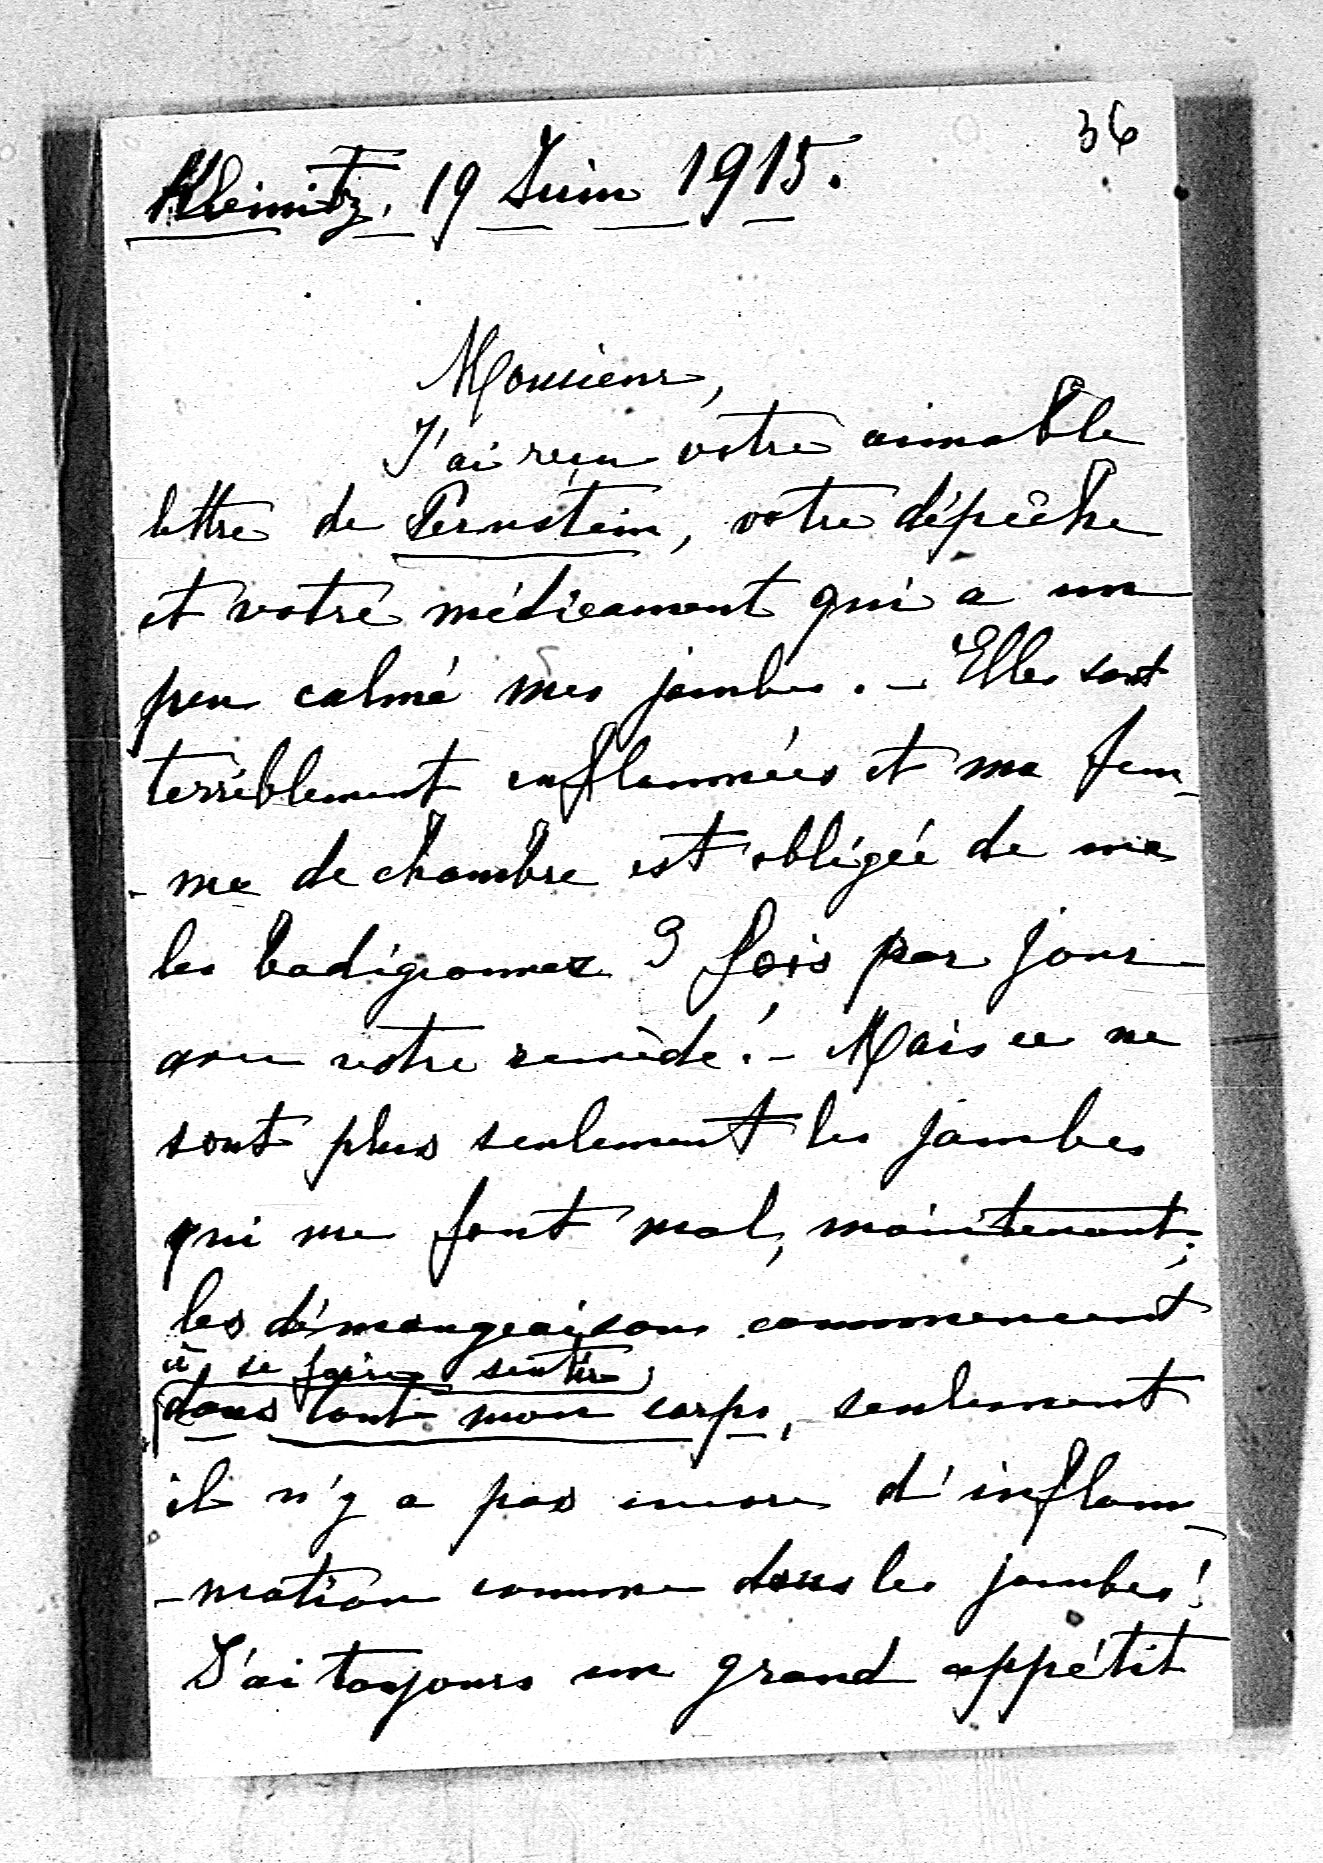 36
Kleinitz, 19 Juin 1915.
Monsieur,
J'ai reçu votre aimable
lettre de Pernstein, votre dépêche
et votre médicament qui a un
peu calmé mes jambes. - Elles sont
terriblement enflammées et ma fem-
-me de chambre est obligée de me
les badigeonner 3 fois par jour
avec votre remède! - Mais ce ne
sont plus seulement les jambes
qui me font mal, maintenant;
les démangeaisons commencent
à se faire sentir
dans tout mon corps, seulement
il n'y a pas encore d'inflam-
-mation comme dans les jambes!
J'ai toujours un grand appétit